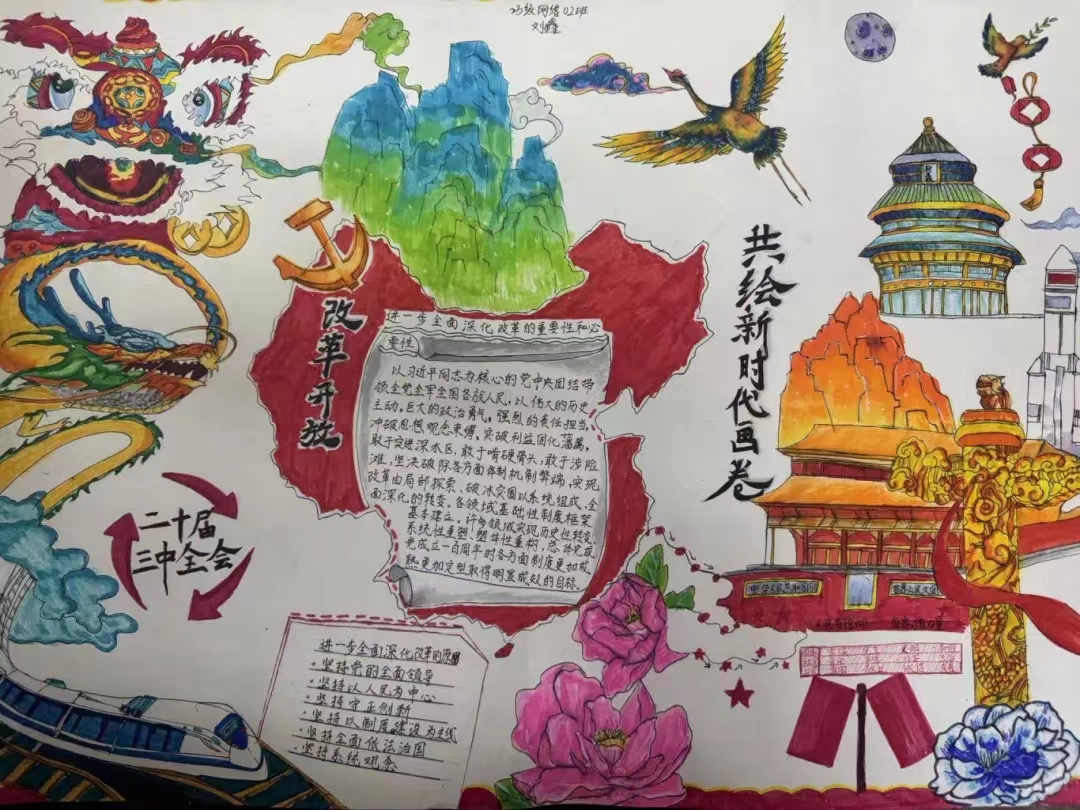 23级网络02班
改革开放
共绘新时代画卷
进一步全面深化改革的重要性和必
要性
以习近平同志为核心的党中央团结带
领全党全军全国各族人民，以伟大的历史
主动，巨大的政治勇气，强烈的责任担当，
冲破思想观念束缚，突破利益固化藩篱，
敢于突进深水区，敢于啃硬骨头，敢于涉险
滩，坚决破除各方面体制机制弊端，实现
改革由局部探索、破冰突围以系统组成、全
面深化的转变。各领域基础性制度框架
基本建立。许多领域实现历史性转变、
系统性重塑、整体性重构，总体完成
党成立一百周年时各方面制度更加成
熟更加定型取得明显成效的目标。
二十届
三中全会
进一步全面深化改革的原则
·坚持党的全面领导
·坚持以人民为中心
·坚持守正创新
·坚持以制度建设为主线
·坚持全面依法治国
·坚持系统观念
中华人民共和国